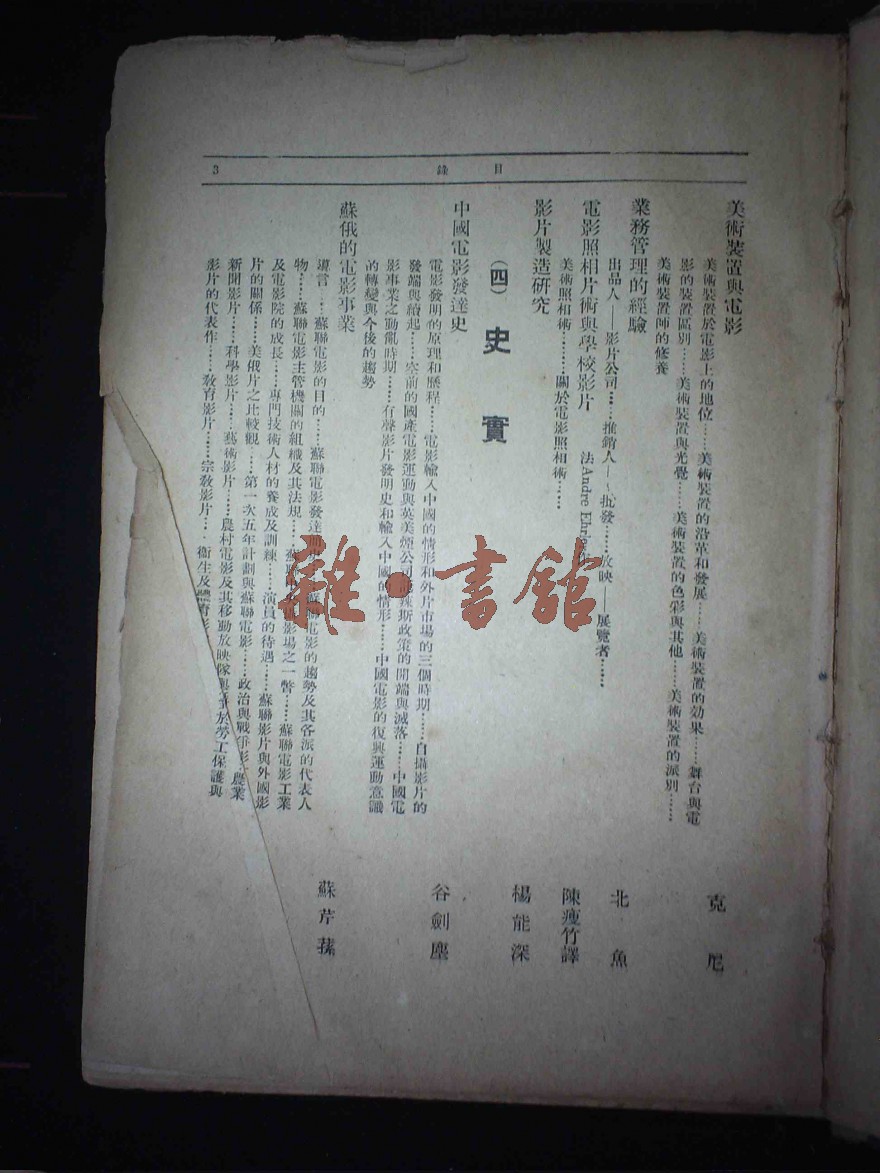 目錄
3
美術裝置與電影
克尼
美術裝置於電影上的地位……美術裝置的沿革和發展……美術裝置的效果……舞台與電
影的裝置區別……美術裝置與光覺……美術裝置的色彩與其他……美術裝置的派別……
美術裝置師的修養
業務管理的經驗
北魚
出品人——影片公司……推銷人——批發……放映——展覽者……
電影照相片術與學校影片 法Andre
陳瘦竹譯
影片製造研究
楊能深
美術照相術……關於電影照相術……
(四) 史實
中國電影發達史
谷劍塵
電影發明的原理和歷程……電影輸入中國的情形和外片市場的三個時期……自攝影片的
發端與續起……空前的國產電影運動與英美煙公司 辣斯政策的開端與滅落……中國電
影事業之動亂時期……有聲影片發明史和輸入中國的情形……中國電影的復興運動意識
的轉變與今後的趨勢
蘇俄的電影事業
蘇芹蓀
導言……蘇聯電影的目的……蘇聯電影發達 蘇聯電影的趨勢及其各派的代表人
物……蘇聯電影主管機關的組織及其法規…… 影場之一瞥……蘇聯電影工業
及電影院的成長……專門技術人材的養成及訓練……演員的待遇……蘇聯影片與外國影
片的關係……美俄片之比較觀……第一次五年計劃與蘇聯電影……政治與戰爭影 農業
新聞影片……科學影片……藝術影片……農村電影及其移動放映隊與 於勞工保護與
影片的代表作……教育影片……宗教影片……衞生及體育
雜·書館